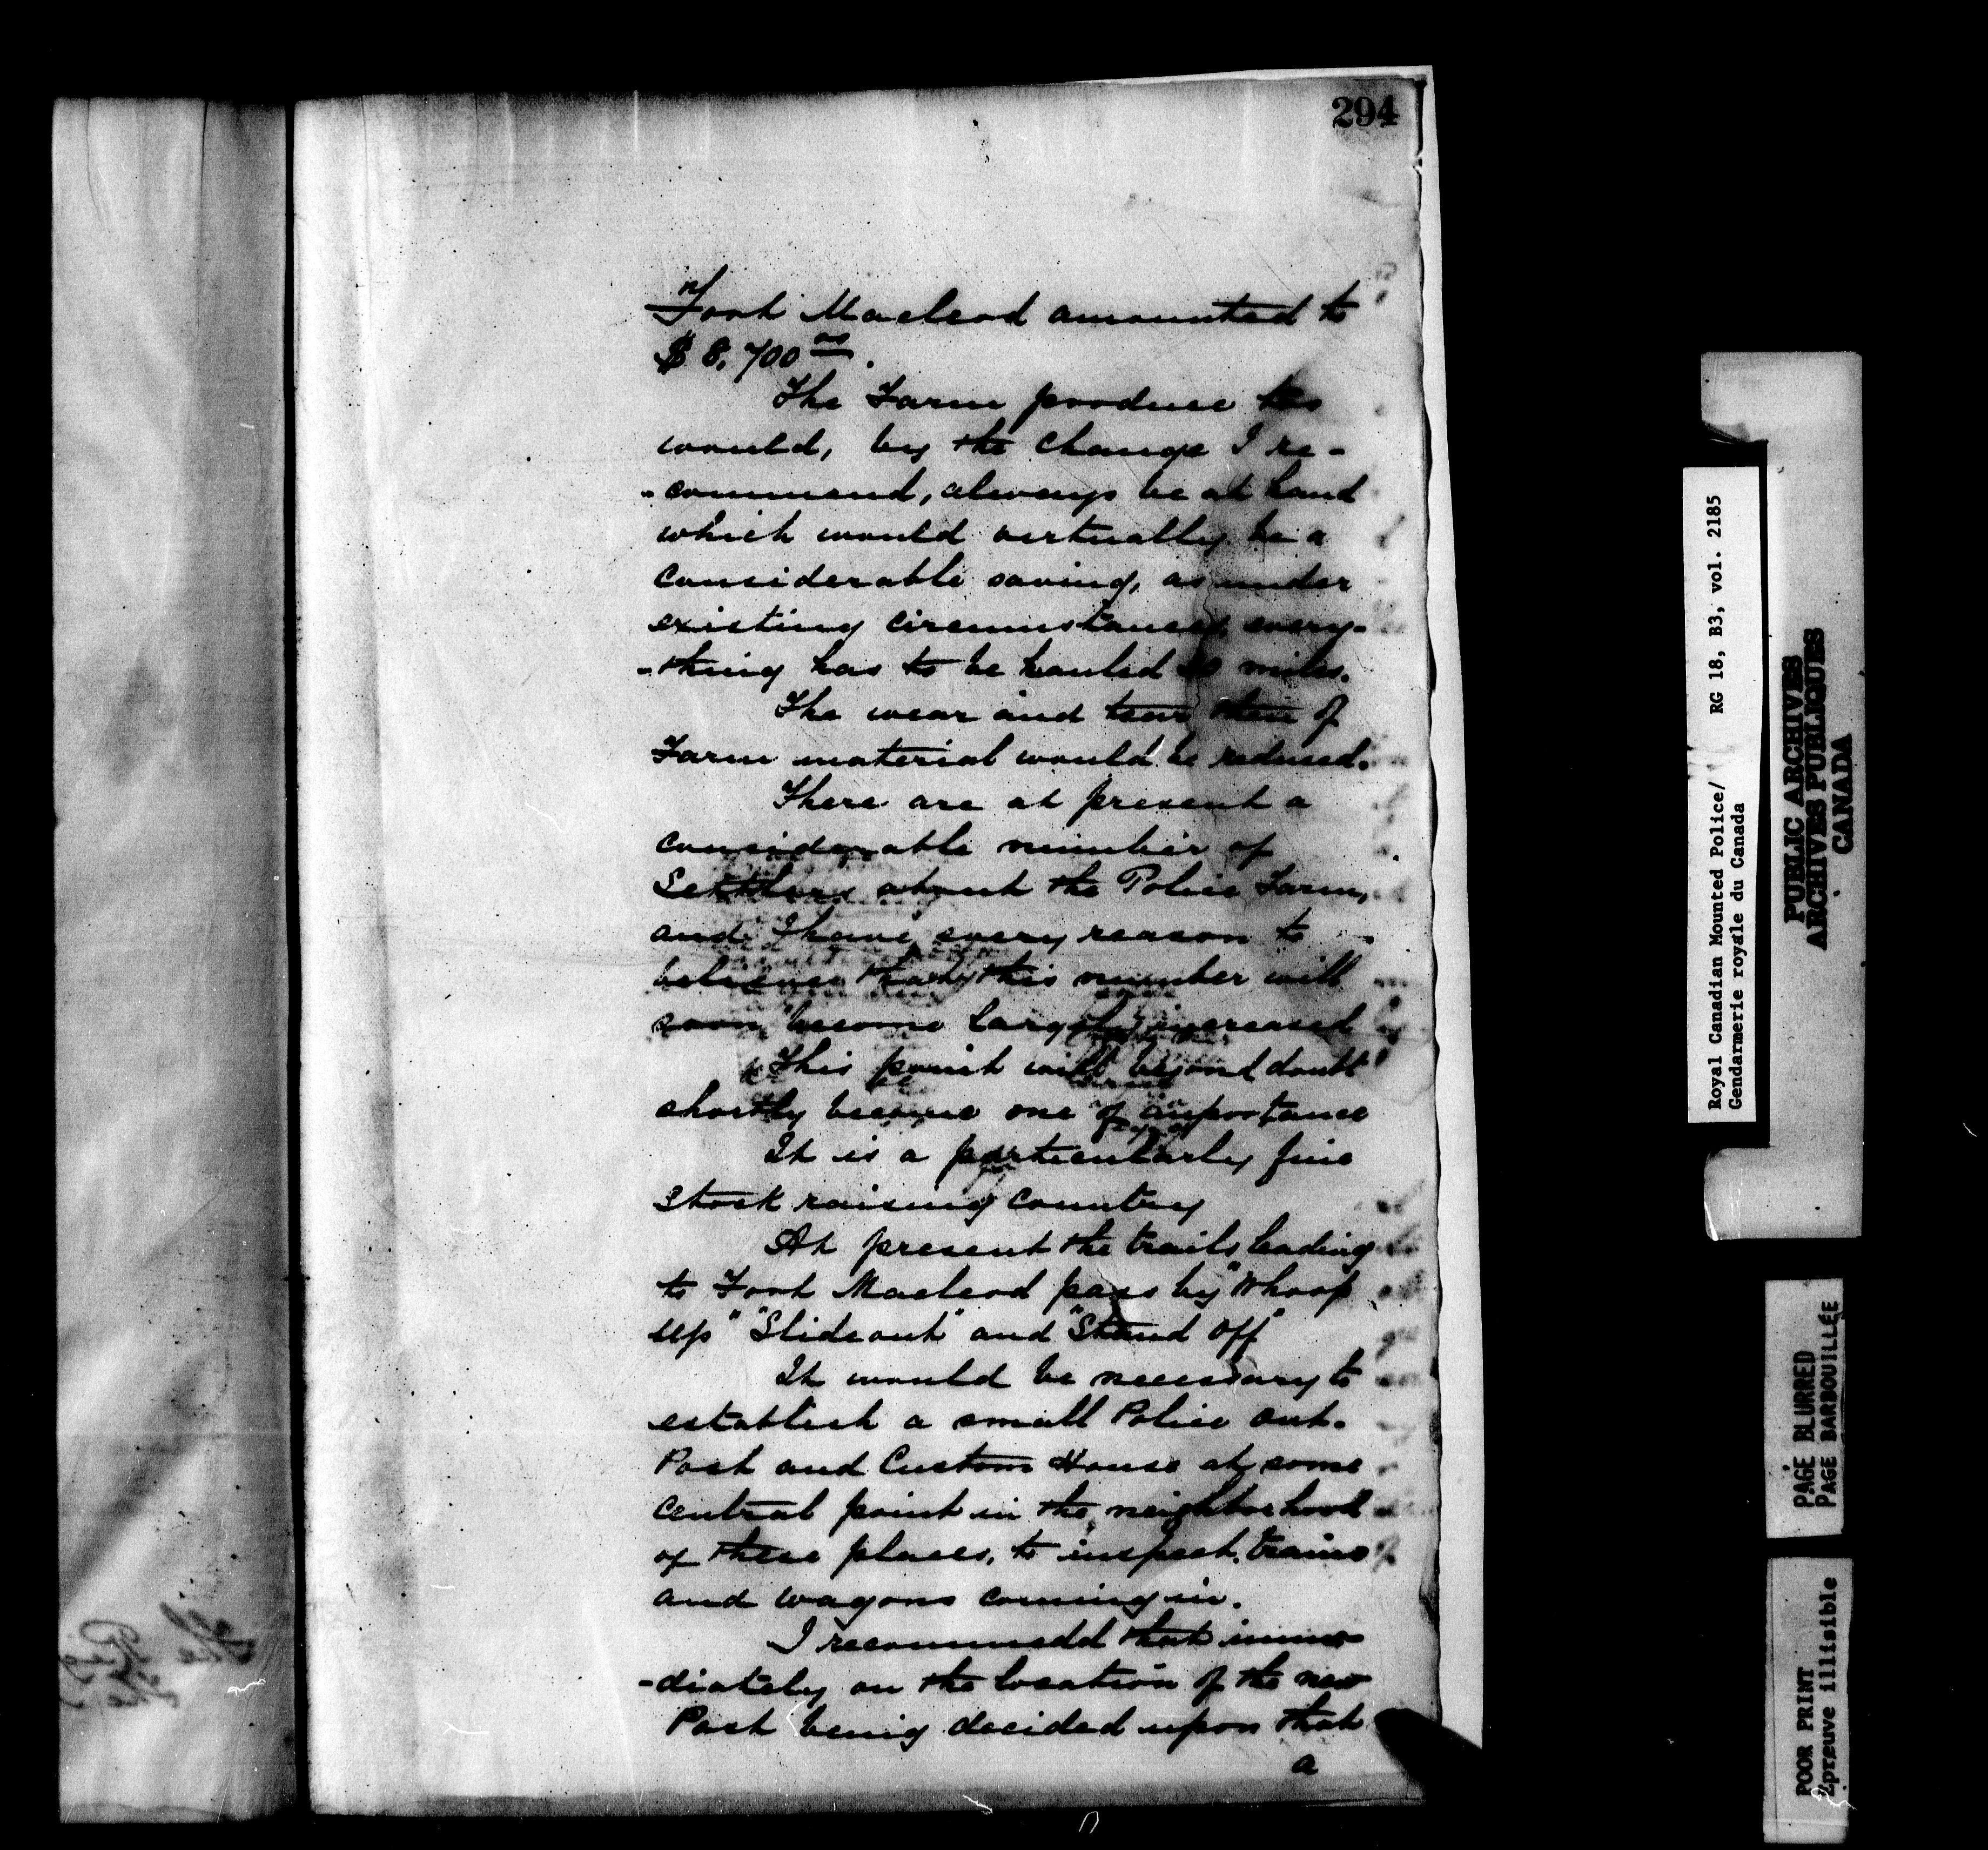 294
of
Fort Macleod amounted to
$ 8,700 00.
The Farm produce too
would, by the change I re-
-commend, always be at hand
which would virtually be a
considerable saving, as under
existing circumstances every-
-thing has to be hauled miles.
The wear and tear then of
Farm material would be reduced.
There are at present a
considerable number of
Settlers about the Police Farm,
and I have every reason to
believe that this number will
soon become largely increased
This point will beyond doubt
shortly become one of importance
It is a particularly fine
Stock raising country
At present the trails leading
to Fort Macleod pass by "Whoop
up" "Slideout" and "Stand Off"
It would be necessary to
establish a small Police Out-
Post and Custom House at some
central point in the neighborhood
of these places, to inspect trains
and wagons coming in.
I recommedd that imme
-diately on the location of the new
Post being decided upon that
a
Royal Canadian Mounted Police/ RG 18, B3, vol. 2185
Gendarmerie royale du Canada
PUBLIC ARCHIVES
ARCHIVES PUBLIQUES
CANADA
PAGE BLURRED
PAGE BARBOUILLÉE
POOR PRINT
Épreuve illisible